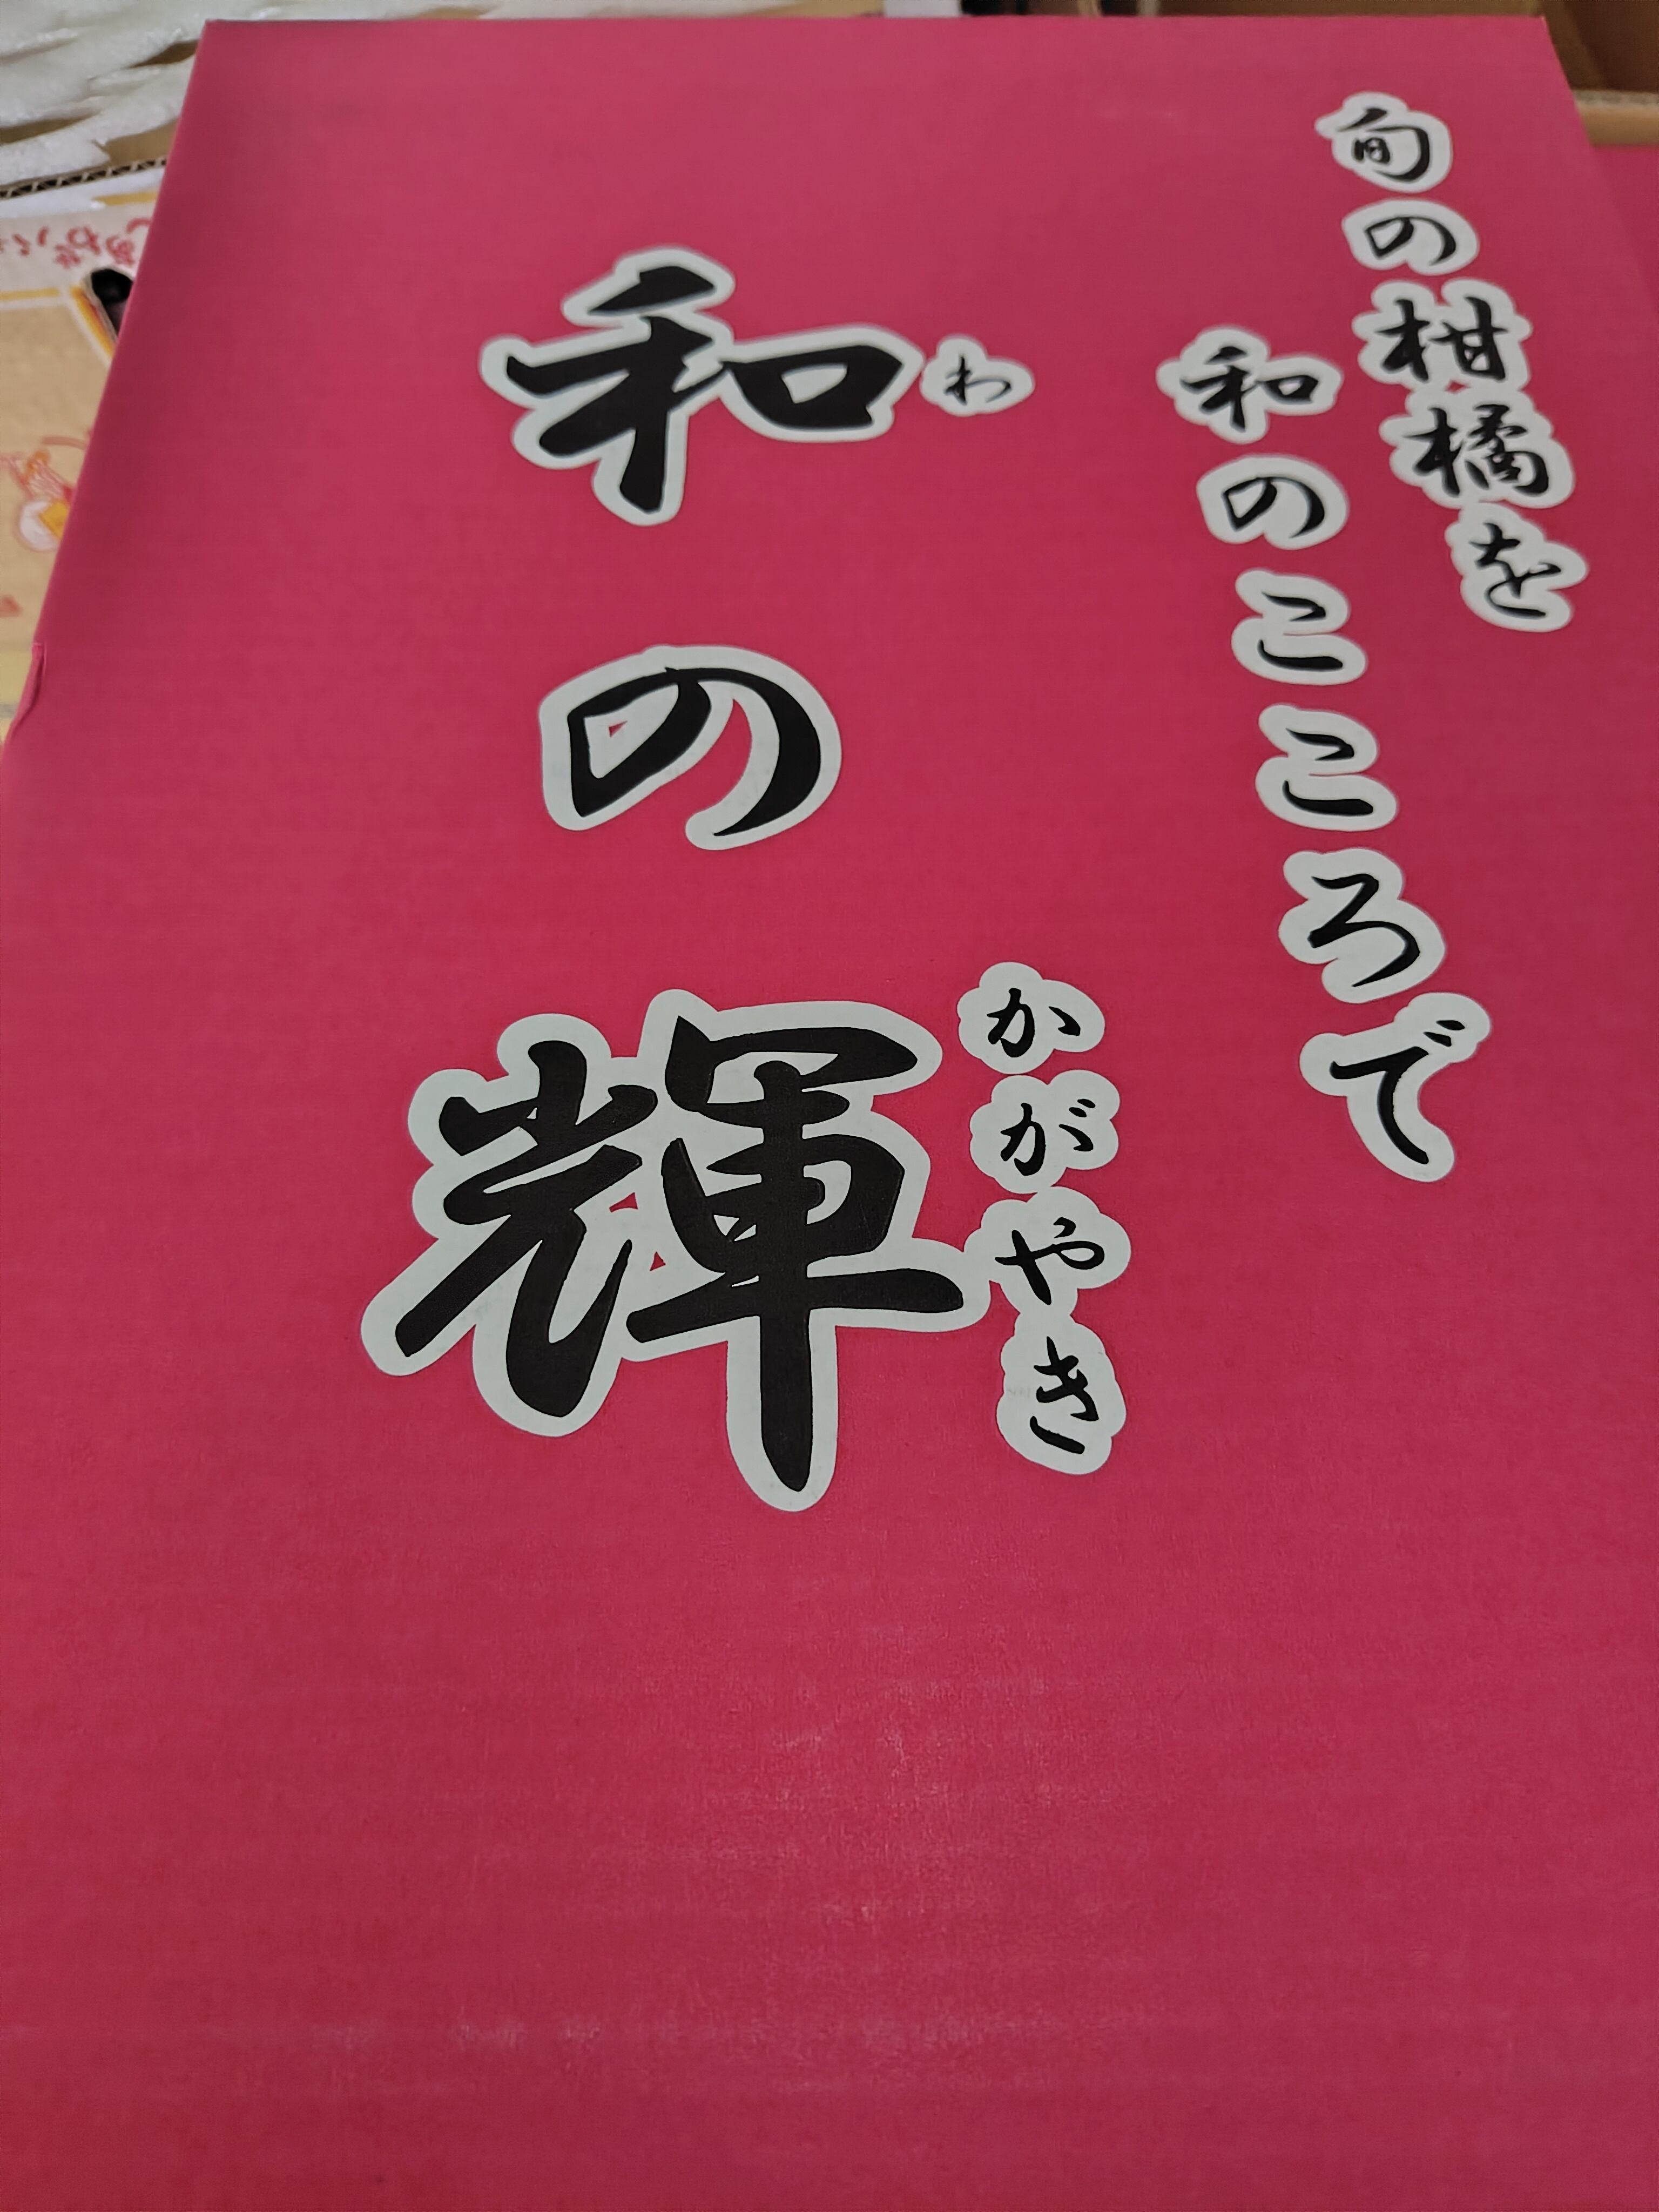 旬の柑橘を
和のこころで
わ
和の輝
かがやき